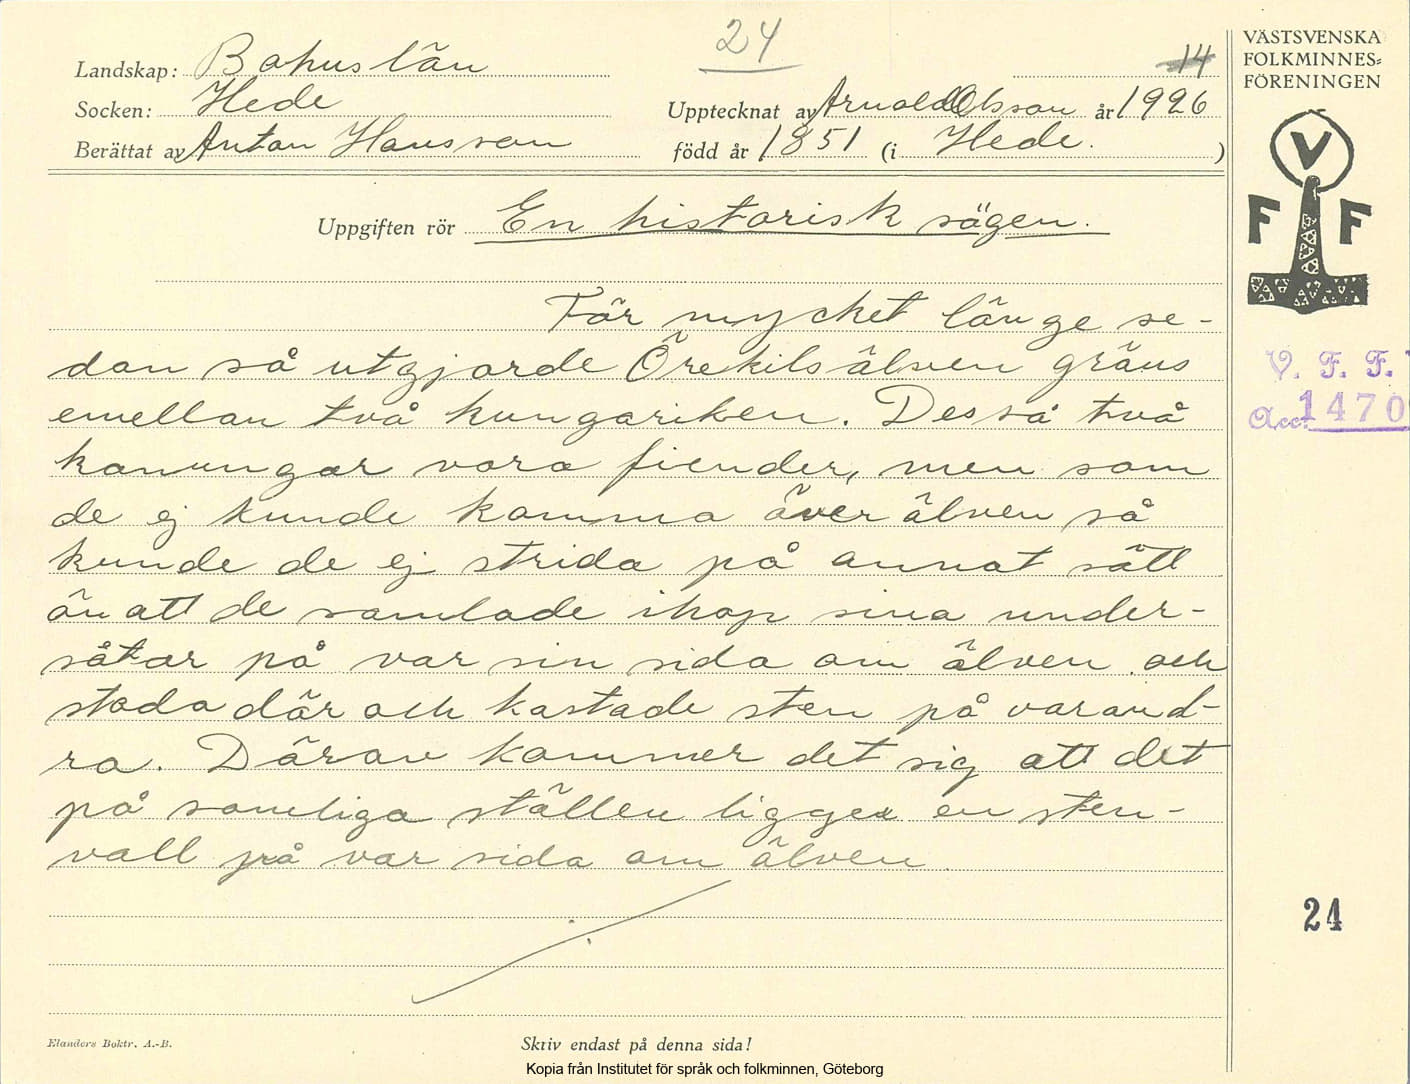 24
14
Landskap: Bohuslän
Socken: Hede
Upptecknat av Arnold Olsson år 1926
Berättat av Anton Hansson född år 1851 (i Hede. )
Uppgiften rör En historisk sägen.
För mycket länge se-
dan så utgjorde Örekilsälven gräns
emellan två kungariken. Dessa två
konungar vora fiender, men som
de ej kunde komma över älven så
kunde de ej strida på annat sätt
än att de samlade ihop sina under-
såtar på var sin sida om älven och
stodo där och kastade sten på varand-
ra. Därav kommer det sig att det
på somliga ställen ligger en sten-
vall på var sida om älven
Elanders Boktr. A.-B.
Skriv endast på denna sida!
Kopia från Institutet för språk och folkminnen, Göteborg
VÄSTSVENSKA
FOLKMINNES=
FÖRENINGEN
V
F F
V. F. F.
Acc. 1470
24